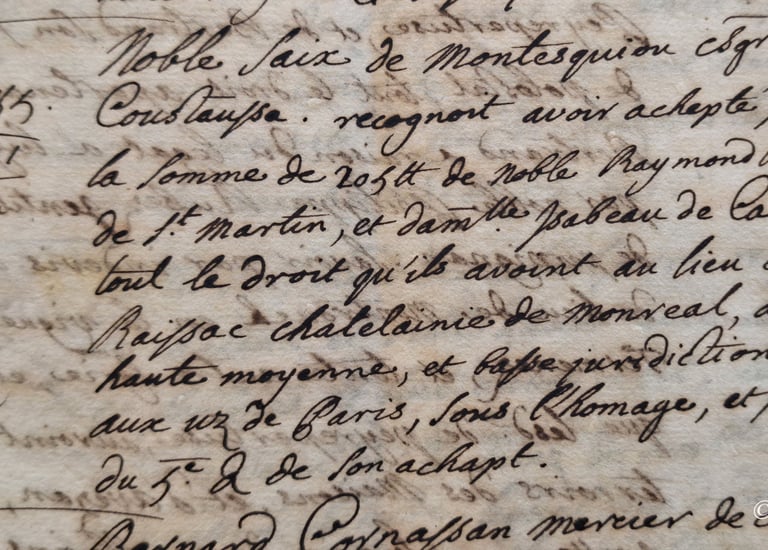 Noble Saix de Montesquiou csgr
55. Coustaussa. recognoit avoir achepté
1 la somme de 205tt de noble Raymond
de St. martin, et dam.lle ysabeau de Ca
tout le droit qu'ils avoint au lieu
Raissac chatelainie de monreal,
haute moyenne, et basse jurisdiction
aux uz de Paris, sous l'homage, et
du 5.e & de son achapt.
Barnard Cornassan mercier de